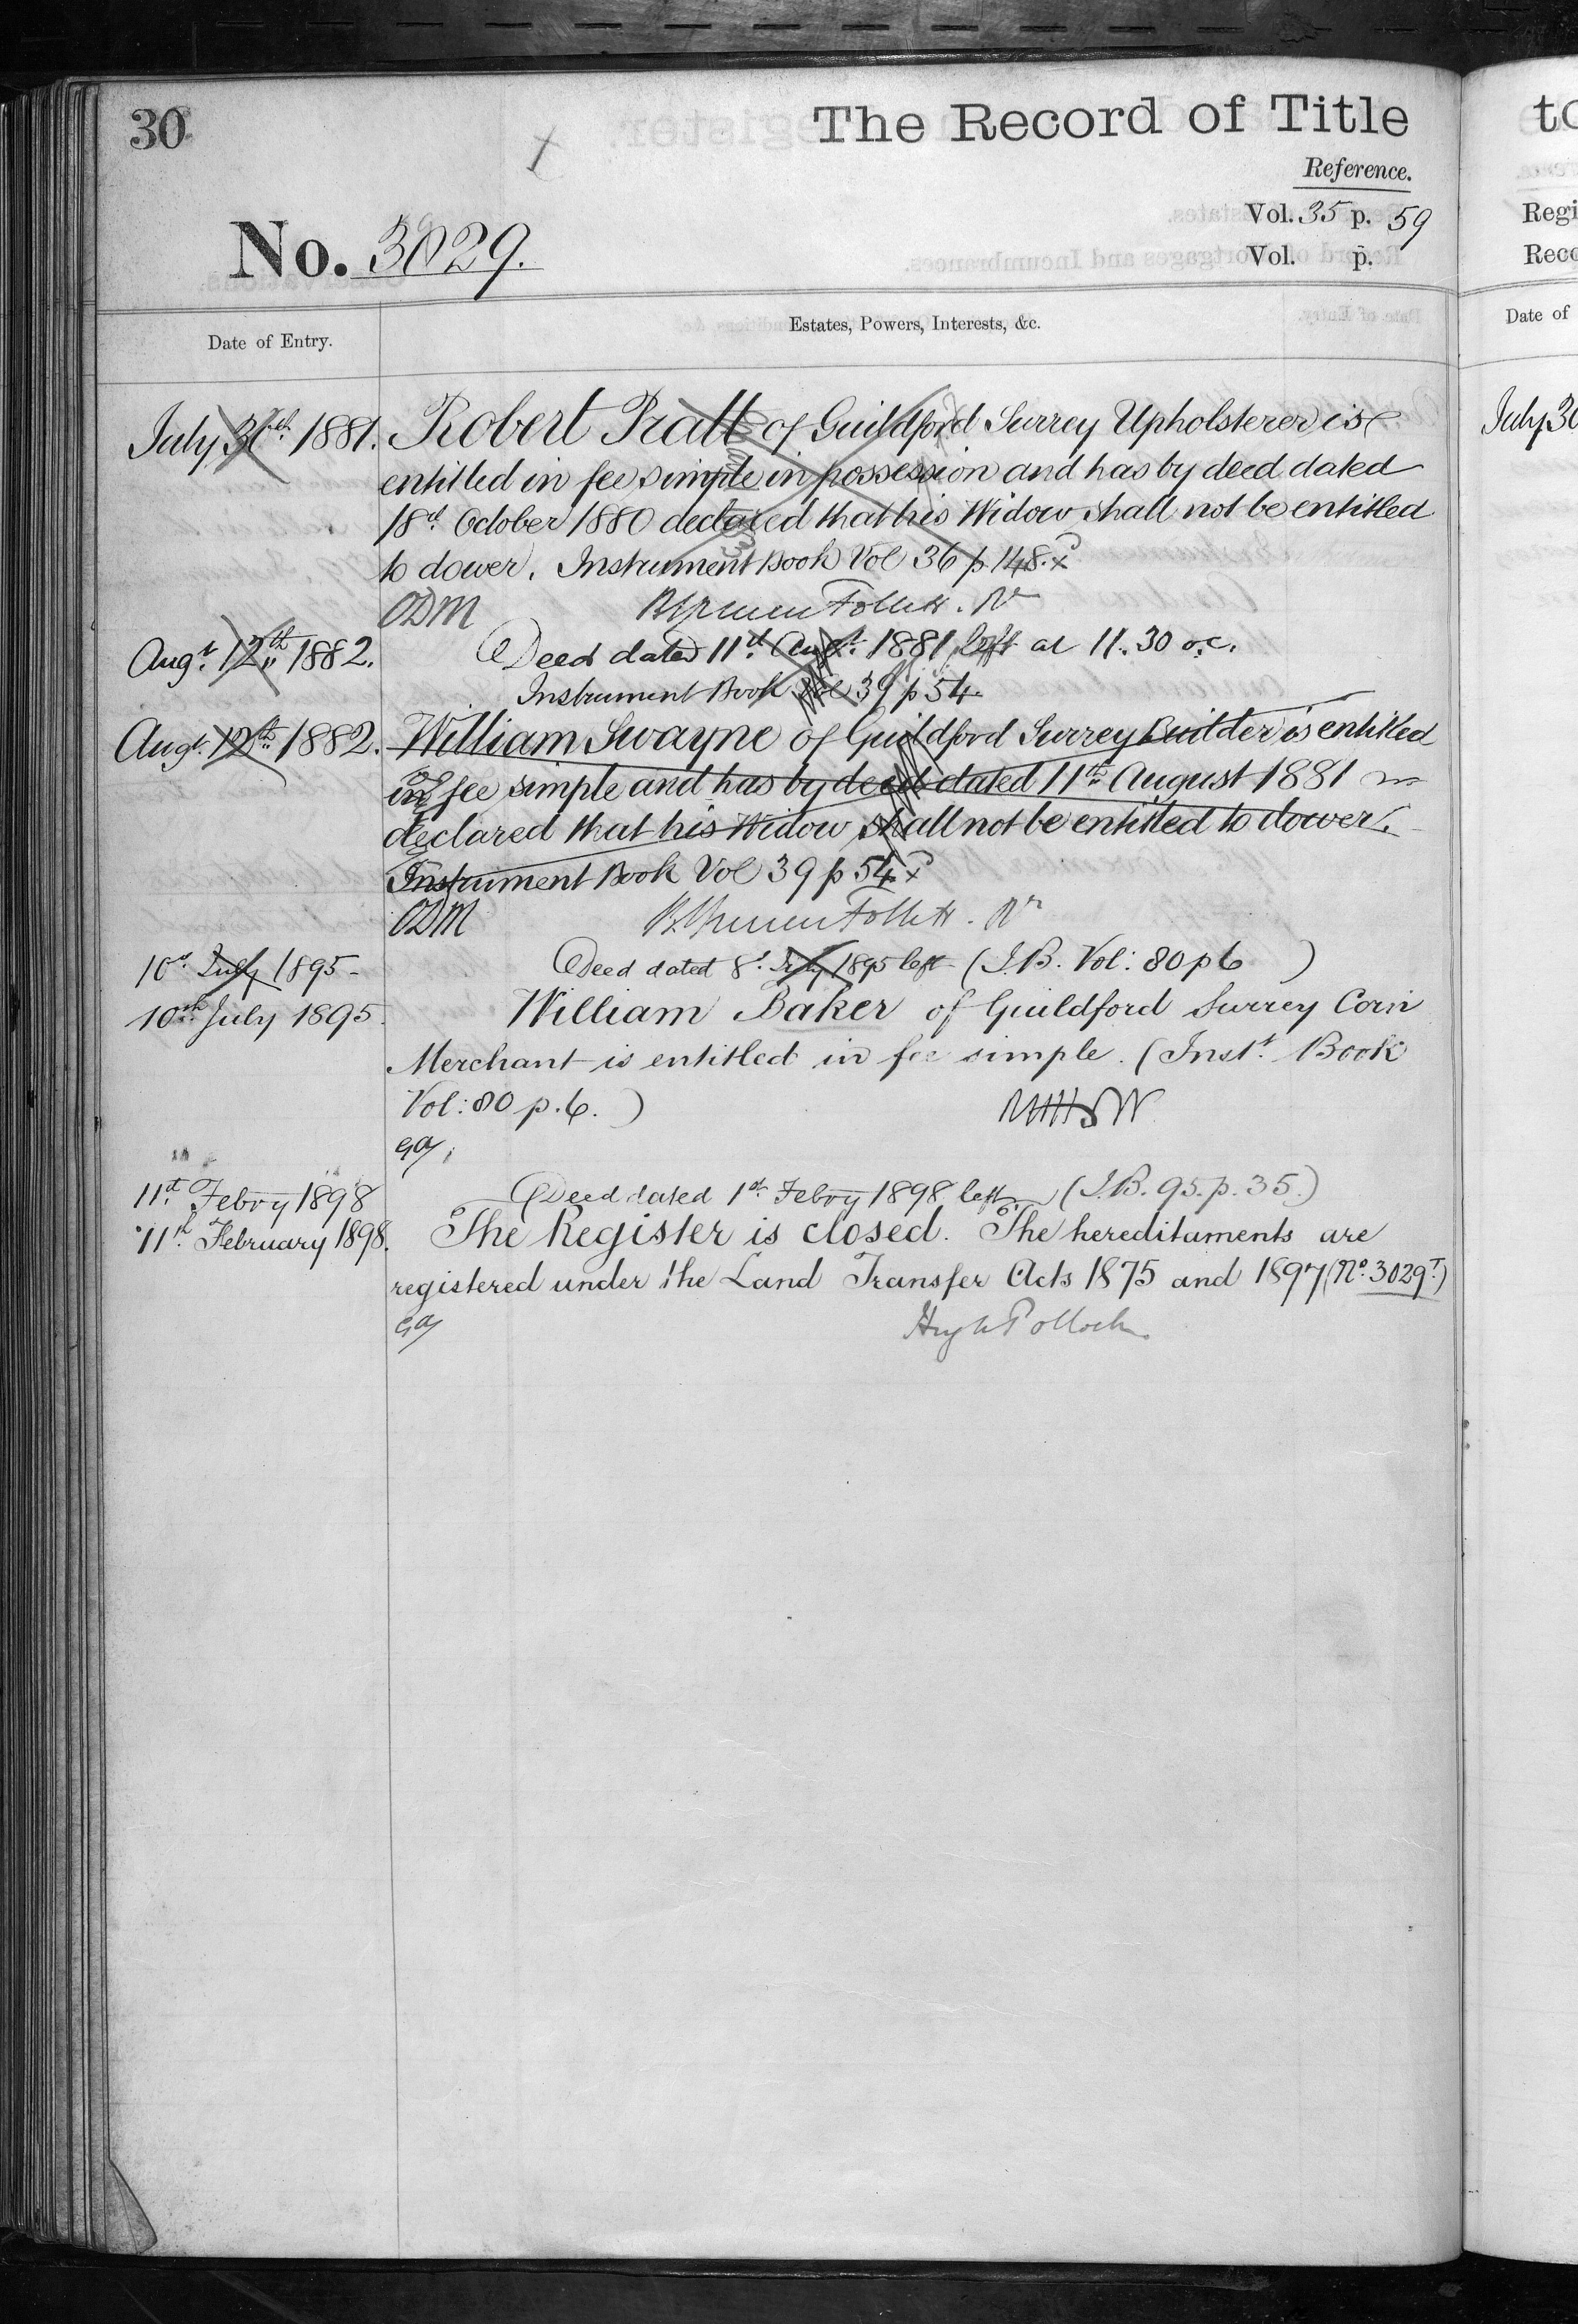 30
The Record of Title
Reference.
Vol. 35 p. 59
Vol. p.
No. 3029.
Date of Entry.
Estates, Powers, Interests, &c.
July 30th 1881. Robert Pratt of Guildford Surrey Upholsterer is
entitled in fee simple in possession and has by deed dated
18th October 1880 declared that his Widow shall not be entitled
to dower. Instrument Book Vol 36 p 148.
ODM Follett. Rr
Augt. 12th 1882. Deed dated 11th Augt. 1881 left at 11.30 o.c.
Instrument Book Vol 39 p 54.
Augt. 12th 1882. William Swayne of Guildford Surrey Builder is entitled
in fee simple and has by deed dated 11th August 1881
declared that his Widow shall not be entitled to dower.
Instrument Book Vol 39 p 54.
ODM Follett. Rr
10th July 1895 Deed dated 8th July 1895 left (I.B. Vol: 80 p 6 )
10th July 1895. William Baker of Guildford Surrey Corn
Merchant is entitled in fee simple. (Instt. Book
Vol: 80 p. 6.)
11th Febry 1898 Deed dated 1st Febry 1898 left (I.B. 95. p. 35.)
11th February 1898. The Register is closed. The hereditaments are
registered under the Land Transfer Acts 1875 and 1897 (No. 3029T.)
Hugh Pollock
to
Regi
Reco
Date of
July 30